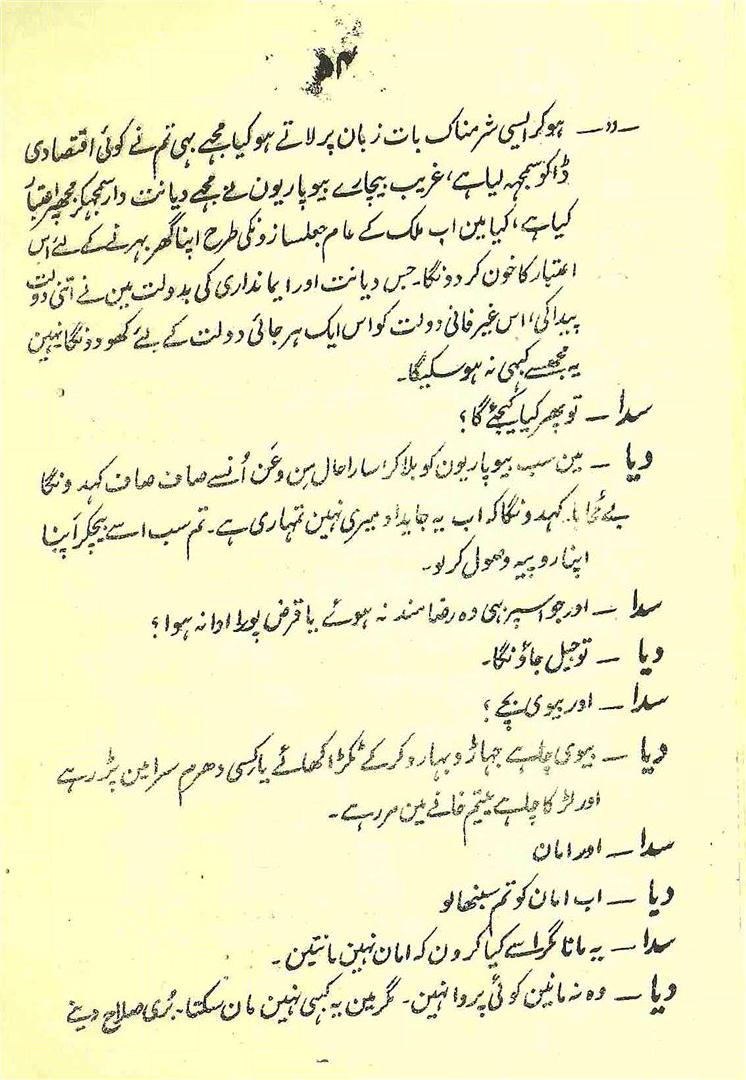 ۵۴
ـ〃ـ ہوکر ایسی شرمناک بات زبان پر لاتے ہو کیا مجھے بہی تم نے کوئی اقتصادی
ڈاکو سمجہہ لیا ہے، غریب بیچارے بیوپاریون نے مجھے دیانت دار سمجہکر مجھپر اعتبار
کیا ہے، کیا مین اب ملک کے عام جعلسازونکی طرح اپنا گھر بہرنے کے لئے اس
اعتبار کا خون کر دونگا۔ جس دیانت اور ایمانداری کی بدولت مین نے اتنی دولت
پیدا کی، اس غیر فانی دولت کو اس ایک ہرجائی دولت کے لئے کھو دونگا نہین
یہ مجھسے کبہی نہ ہو سکیگا۔
سدا ـ تو پھر کیا کیجئے گا؟
دیا ـ مین سب بیوپاریون کو بلا کر سارا حال مِن و عَن اُنسے صاف صاف کہدونگا
کہدونگا کہ اب یہ جایداد میری نہین تمہاری ہے۔ تم سب اسے بیچکر اَپنا
اپنا روپیہ وصول کر لو۔
سدا ـ اور جو اسپر بہی وہ رضامند نہ ہوئے یا قرض پورا ادا نہ ہوا؟
دیا ـ تو جیل جاؤنگا۔
سدا ـ اور بیوی بچے؟
دیا ـ بیوی چاہے جہاڑو بہارو کر کے ٹکڑا کھائے یا کِسی دھرم سرا مین پڑ رہے
اور لڑکا چاہے یتیم خانے مین مر رہے۔
سدا ـ اور امان
دیا ـ اب امان کو تم سنبھالو
سدا ـ یہ مانا مگر اسے کیا کرون کہ امان نہین مانتین۔
دیا ـ وہ نہ مانین کوئی پروا نہین۔ مگر مین یہ کبہی نہین مان سکتا۔ بُری صلاح دینے